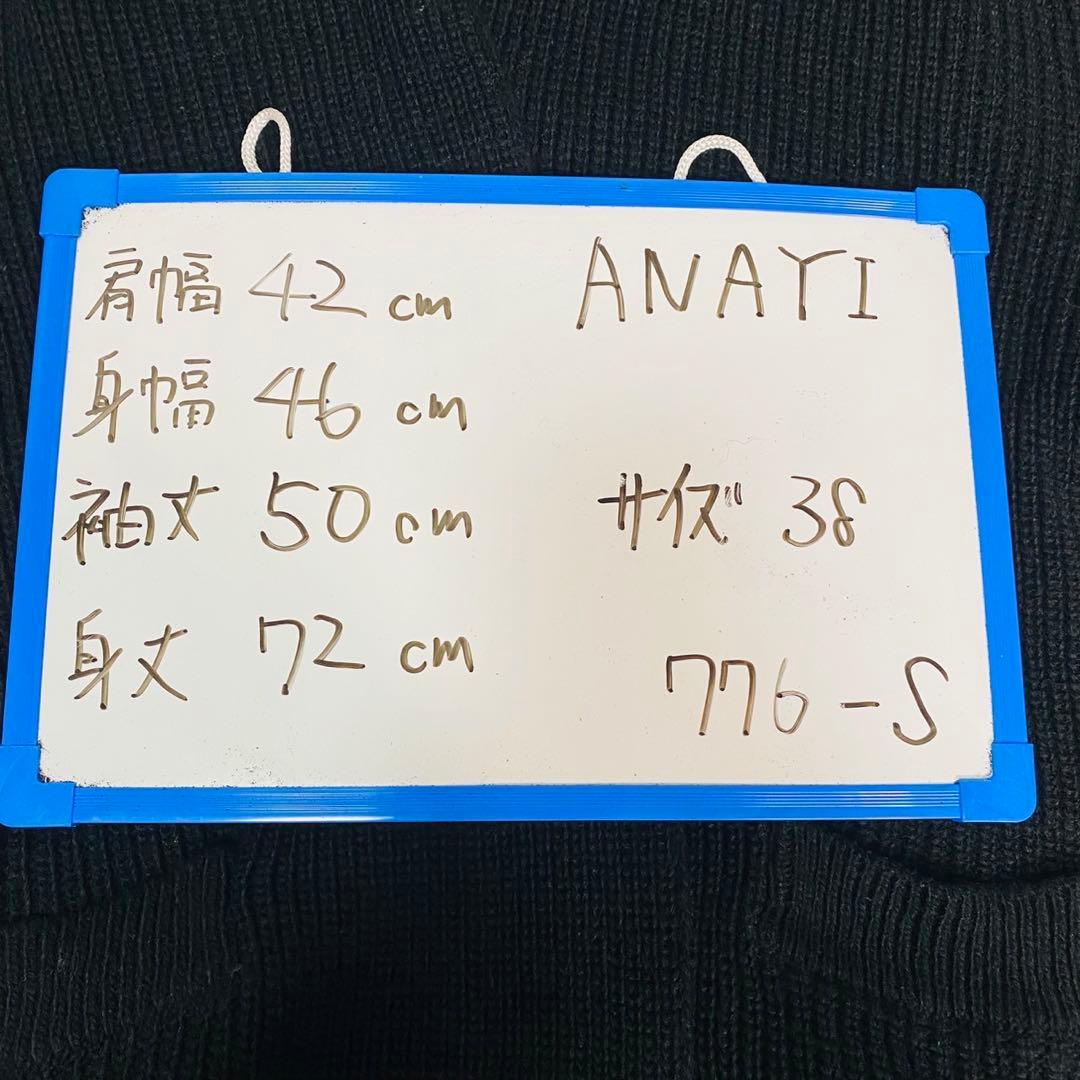 肩幅 42 cm
身幅 46 cm
袖丈 50 cm
身丈 72 cm
ANAYI
サイズ 38
776-S